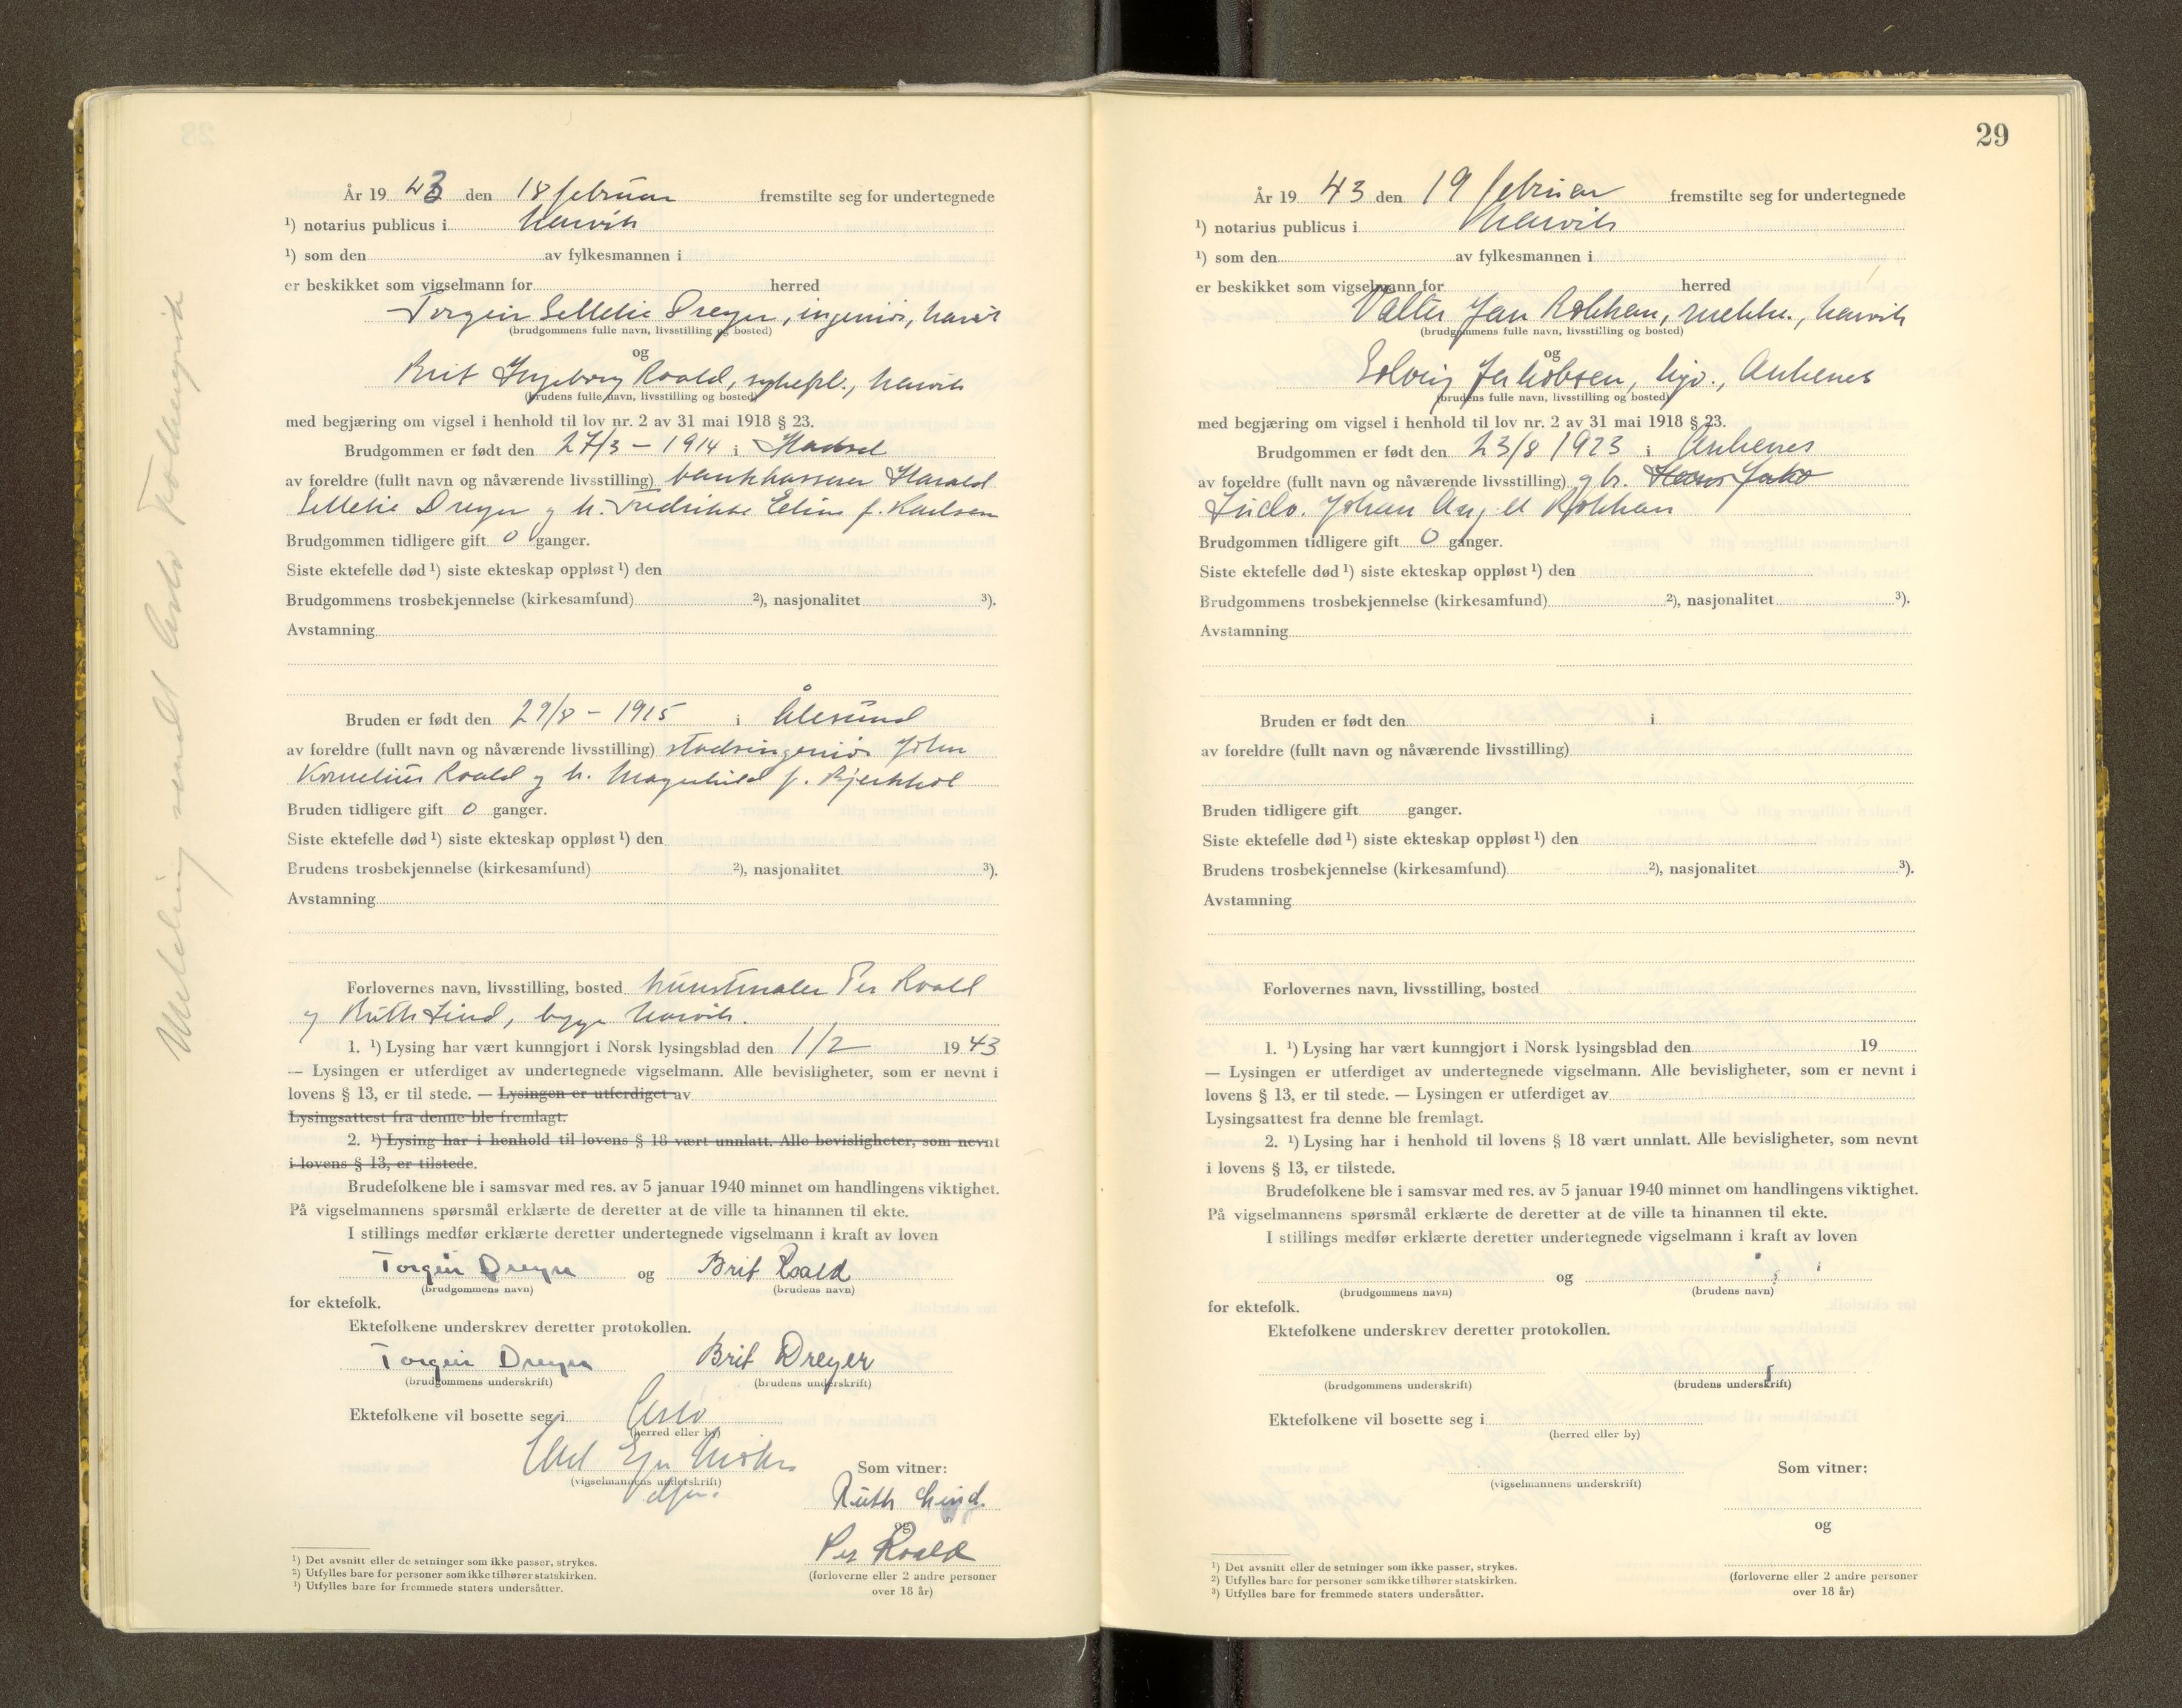 År 19 43 den 18 februar fremstilte seg for undertegnede
¹) notarius publicus i Narvik
¹) som den av fylkesmannen i
er beskikket som vigselmann for herred
Torgeir Selletie Dreyer, ingeniør, Narvik
(brudgommens fulle navn, livsstilling og bosted)
og
Brit Ingeborg Roald, sykepl., Narvik
(brudens fulle navn, livsstilling og bosted)
med begjæring om vigsel i henhold til lov nr. 2 av 31 mai 1918 § 23.
Brudgommen er født den 27/3 - 1914 i Hadsel
av foreldre (fullt navn og nåværende livsstilling) bankkasserer Harald
Selletie Dreyer og h. Fredrikke Eline f. Karlsen
Brudgommen tidligere gift 0 ganger.
Siste ektefelle død ¹) siste ekteskap oppløst ¹) den
Brudgommens trosbekjennelse (kirkesamfund) ²), nasjonalitet ³).
Avstamning
Bruden er født den 29/8 - 1915 i Ålesund
av foreldre (fullt navn og nåværende livsstilling) stadsingeniør John
Kornelius Roald og h. Magnhild f. Bjerkhol
Bruden tidligere gift 0 ganger.
Siste ektefelle død ¹) siste ekteskap oppløst ¹) den
Brudens trosbekjennelse (kirkesamfund) ²), nasjonalitet ³).
Avstamning
Forlovernes navn, livsstilling, bosted kunstmaler Per Roald
og Ruth Lind, begge Narvik.
1. ¹) Lysing har vært kunngjort i Norsk lysingsblad den 1/2 19 43
— Lysingen er utferdiget av undertegnede vigselmann. Alle bevisligheter, som er nevnt i
lovens § 13, er til stede. — Lysingen er utferdiget av
Lysingsattest fra denne ble fremlagt.
2. ¹) Lysing har i henhold til lovens § 18 vært unnlatt. Alle bevisligheter, som nevnt
i lovens § 13, er tilstede.
Brudefolkene ble i samsvar med res. av 5 januar 1940 minnet om handlingens viktighet.
På vigselmannens spørsmål erklærte de deretter at de ville ta hinannen til ekte.
I stillings medfør erklærte deretter undertegnede vigselmann i kraft av loven
Torgeir Dreyer og Brit Roald
(brudgommens navn) (brudens navn)
for ektefolk.
Ektefolkene underskrev deretter protokollen.
Torgeir Dreyer Brit Dreyer
(brudgommens underskrift) (brudens underskrift)
Ektefolkene vil bosette seg i Oslo
(herred eller by)
(vigselmannens underskrift)
Som vitner:
Ruth Lind.
og
Per Roald
(forloverne eller 2 andre personer
over 18 år)
¹) Det avsnitt eller de setninger som ikke passer, strykes.
²) Utfylles bare for personer som ikke tilhører statskirken.
³) Utfylles bare for fremmede staters undersåtter.
Melding sendt Oslo Folkeregister
29
År 19 43 den 19 februar fremstilte seg for undertegnede
¹) notarius publicus i Narvik
¹) som den av fylkesmannen i
er beskikket som vigselmann for herred
Valter Jan Rokkan, mekhr., Narvik
(brudgommens fulle navn, livsstilling og bosted)
og
Solveig Jakobsen, hjv., Ankenes
(brudens fulle navn, livsstilling og bosted)
med begjæring om vigsel i henhold til lov nr. 2 av 31 mai 1918 § 23.
Brudgommen er født den 23/8 1923 i Ankenes
av foreldre (fullt navn og nåværende livsstilling) gbr. Hans Jako
Johan Rokkan
Brudgommen tidligere gift 0 ganger.
Siste ektefelle død ¹) siste ekteskap oppløst ¹) den
Brudgommens trosbekjennelse (kirkesamfund) ²), nasjonalitet ³).
Avstamning
Bruden er født den i
av foreldre (fullt navn og nåværende livsstilling)
Bruden tidligere gift ganger.
Siste ektefelle død ¹) siste ekteskap oppløst ¹) den
Brudens trosbekjennelse (kirkesamfund) ²), nasjonalitet ³).
Avstamning
Forlovernes navn, livsstilling, bosted
1. ¹) Lysing har vært kunngjort i Norsk lysingsblad den 19
— Lysingen er utferdiget av undertegnede vigselmann. Alle bevisligheter, som er nevnt i
lovens § 13, er til stede. — Lysingen er utferdiget av
Lysingsattest fra denne ble fremlagt.
2. ¹) Lysing har i henhold til lovens § 18 vært unnlatt. Alle bevisligheter, som nevnt
i lovens § 13, er tilstede.
Brudefolkene ble i samsvar med res. av 5 januar 1940 minnet om handlingens viktighet.
På vigselmannens spørsmål erklærte de deretter at de ville ta hinannen til ekte.
I stillings medfør erklærte deretter undertegnede vigselmann i kraft av loven
og
(brudgommens navn) (brudens navn)
for ektefolk.
Ektefolkene underskrev deretter protokollen.
(brudgommens underskrift) (brudens underskrift)
Ektefolkene vil bosette seg i
(herred eller by)
Som vitner:
(vigselmannens underskrift)
og
(forloverne eller 2 andre personer
over 18 år)
¹) Det avsnitt eller de setninger som ikke passer, strykes.
²) Utfylles bare for personer som ikke tilhører statskirken.
³) Utfylles bare for fremmede staters undersåtter.